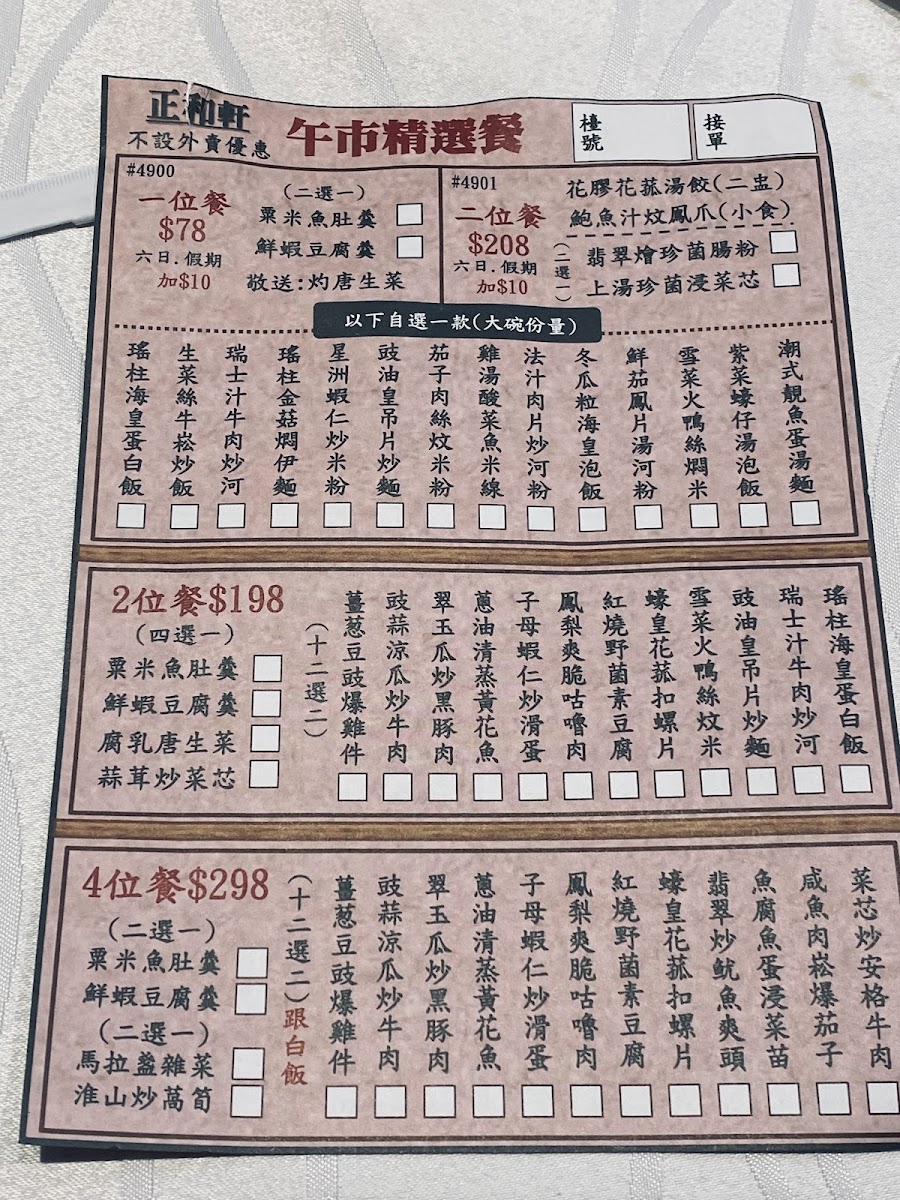 正和軒
不設外賣優惠
午市精選餐
檯號
接單
#4900
一位餐
$78
六日.假期
加$10
(二選一)
粟米魚肚羹
鮮蝦豆腐羹
敬送:灼唐生菜
#4901
二位餐
$208
六日.假期
加$10
花膠花菰湯餃(二盅)
鮑魚汁炆鳳爪(小食)
(二選一)
翡翠燴珍菌腸粉
上湯珍菌浸菜芯
以下自選一款(大碗份量)
瑤柱海皇蛋白飯
生菜絲牛崧炒飯
瑞士汁牛肉炒河
瑤柱金菇燜伊麵
星洲蝦仁炒米粉
豉油皇吊片炒麵
茄子肉絲炆米粉
雞湯酸菜魚米線
法汁肉片炒河粉
冬瓜粒海皇泡飯
鮮茄鳳片湯河粉
雪菜火鴨絲燜米
紫菜蠔仔湯泡飯
潮式靚魚蛋湯麵
2位餐$198
(四選一)
粟米魚肚羹
鮮蝦豆腐羹
腐乳唐生菜
蒜茸炒菜芯
(十二選二)
薑葱豆豉爆雞件
豉蒜涼瓜炒牛肉
翠玉瓜炒黑豚肉
蔥油清蒸黃花魚
子母蝦仁炒滑蛋
鳳梨爽脆咕嚕肉
紅燒野菌素豆腐
蠔皇花菰扣螺片
雪菜火鴨絲炆米
豉油皇吊片炒麵
瑞士汁牛肉炒河
瑤柱海皇蛋白飯
4位餐$298
(二選一)
粟米魚肚羹
鮮蝦豆腐羹
(二選一)
馬拉盞雜菜
淮山炒萵筍
(十二選二)跟白飯
薑葱豆豉爆雞件
豉蒜涼瓜炒牛肉
翠玉瓜炒黑豚肉
蔥油清蒸黃花魚
子母蝦仁炒滑蛋
鳳梨爽脆咕嚕肉
紅燒野菌素豆腐
蠔皇花菰扣螺片
翡翠炒魷魚爽頭
魚腐魚蛋浸菜苗
咸魚肉崧爆茄子
菜芯炒安格牛肉